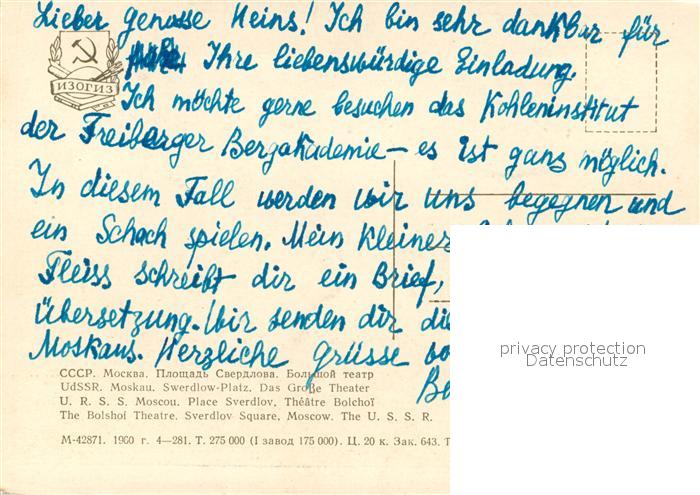 Lieber genosse Heins! Ich bin sehr dankbar für
Ihre liebenswürdige Einladung.
ИЗОГИЗ
Ich möchte gerne besuchen das Kohleninstitut
der Freiberger Bergakademie – es ist gans möglich.
In diesem Fall werden wir uns begegnen und
ein Schach spielen. Mein Kleiner
Fleiss schreibt dir ein Brief,
Übersetzung. Wir senden dir die
Moskaus. Herzliche grüsse
privacy protection
Datenschutz
СССР. Москва. Площадь Свердлова. Большой театр
UdSSR. Moskau. Swerdlow-Platz. Das Große Theater
U. R. S. S. Moscou. Place Sverdlov, Théâtre Bolchoï
The Bolshoi Theatre. Sverdlov Square, Moscow. The U. S. S. R.
М-42871. 1960 г. 4—281. Т. 275 000 (I завод 175 000). Ц. 20 к. Зак. 643. Т